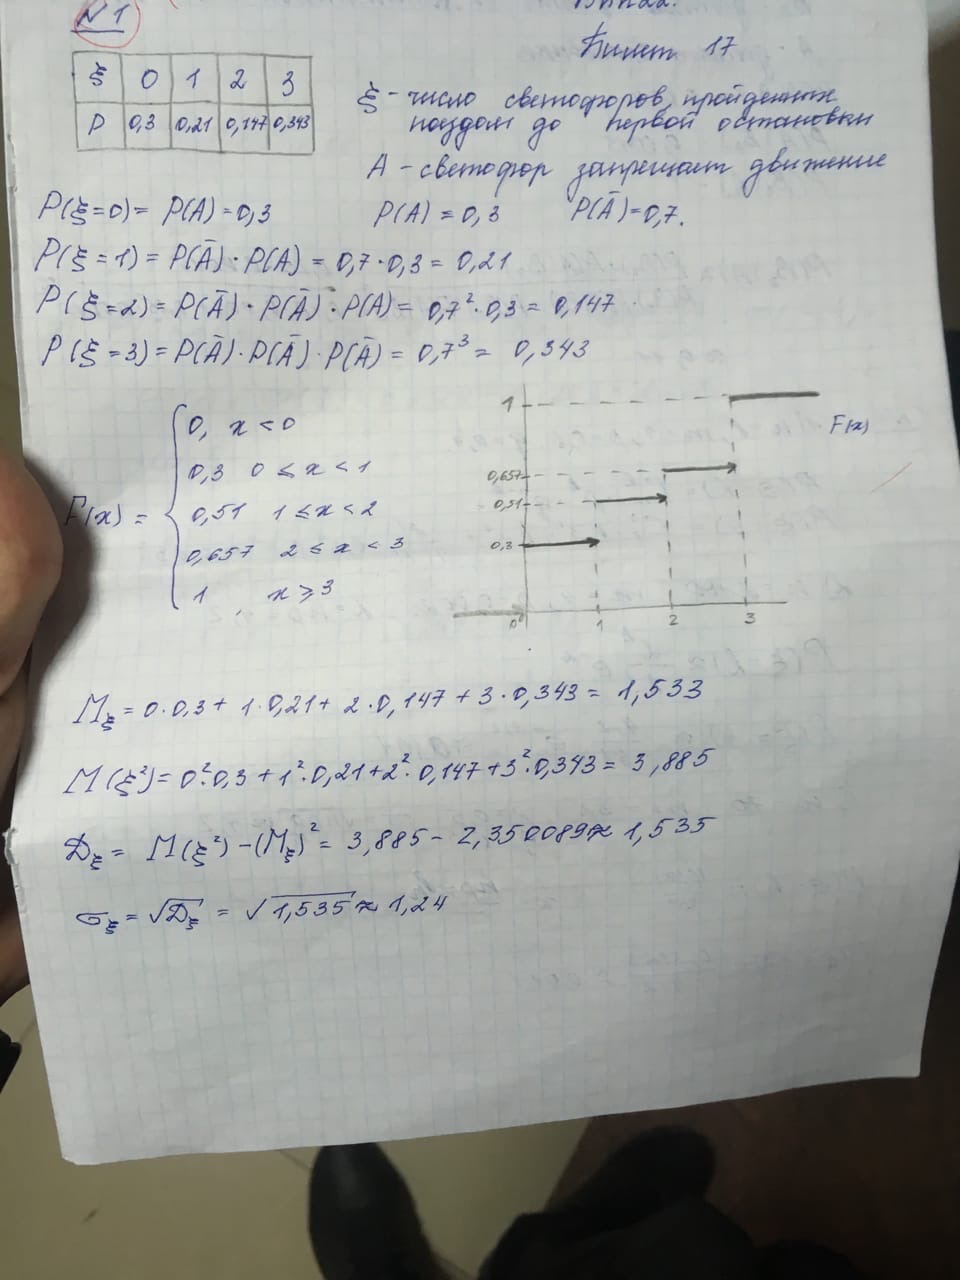 N1
Билет 17
ξ 0 1 2 3
P 0,3 0,21 0,147 0,343
ξ - число светофоров, пройденных
поездом до первой остановки
A - светофор запрещает движение
P(ξ=0) = P(A) = 0,3
P(A) = 0,3 P(Ā) = 0,7.
P(ξ=1) = P(Ā)·P(A) = 0,7·0,3 = 0,21
P(ξ=2) = P(Ā)·P(Ā)·P(A) = 0,7²·0,3 = 0,147
P(ξ=3) = P(Ā)·P(Ā)·P(Ā) = 0,7³ = 0,343
F(x) =
0, x < 0
0,3 0 ≤ x < 1
0,51 1 ≤ x < 2
0,657 2 ≤ x < 3
1, x ≥ 3
1
F(x)
0,657
0,51
0,3
0 1 2 3
Mξ = 0·0,3 + 1·0,21 + 2·0,147 + 3·0,343 = 1,533
M(ξ²) = 0²·0,3 + 1²·0,21 + 2²·0,147 + 3²·0,343 = 3,885
Dξ = M(ξ²) - (Mξ)² = 3,885 - 2,350089 ≈ 1,535
σξ = √Dξ = √1,535 ≈ 1,24